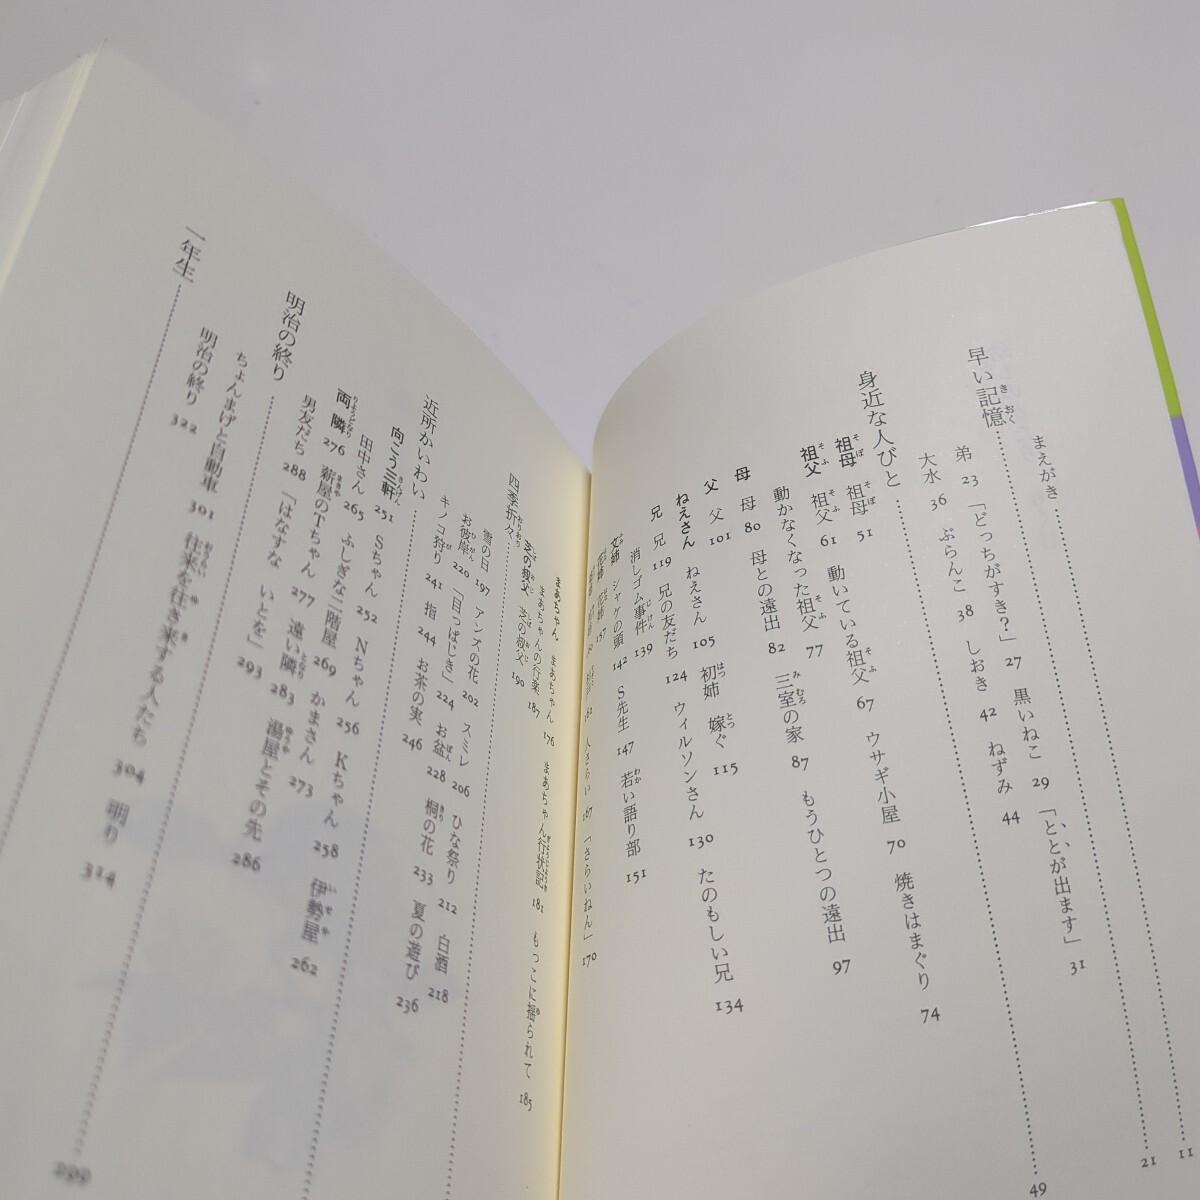 まえがき 11
早い記憶 21
弟 23 「どっちがすき?」 27 黒いねこ 29 「とゝが出ます」 31
大水 36 ぶらんこ 38 しおき 42 ねずみ 44
身近な人びと 49
祖母 祖母 51 動いている祖父 67 ウサギ小屋 70 焼きはまぐり 74
祖父 祖父 61
動かなくなった祖父 77
母 母 80 母との遠出 82 三室の家 87 もうひとつの遠出 97
父 父 101
ねえさん ねえさん 105 初姉 嫁ぐ 115
兄 兄 119 兄の友だち 124 ウィルソンさん 130 たのもしい兄 134
消しゴム事件 139
文姉 シャケの頭 142 S先生 147 若い語り部 151
花姉 花姉 157
人さらい 167 「さらいねん」 170
まあちゃん まあちゃん 176 まあちゃん行状記 181 もっこに揺られて 185
まあちゃんの行楽 187
芝の叔父 芝の叔父 190
四季折々
雪の日 アンズの花 202 スミレ 206 ひな祭り 212 白酒 218
お彼岸 220 「目っぱじき」 224 お盆 228 桐の花 233 夏の遊び 236
キノコ狩り 241 指 244 お茶の実 246
近所かいわい
向こう三軒 251 Sちゃん 252 Nちゃん 256 Kちゃん 258 伊勢屋 262
田中さん 265 ふしぎな二階屋 269 かまさん 273
両隣 276 薪屋のTちゃん 277 遠い隣 283 湯屋とその先 286
男友だち 288 「はなすな いとを」 293
明治の終り 299
ちょんまげと自動車 301 往来を往き来する人たち 304 明り 314
明治の終り 322
一年生